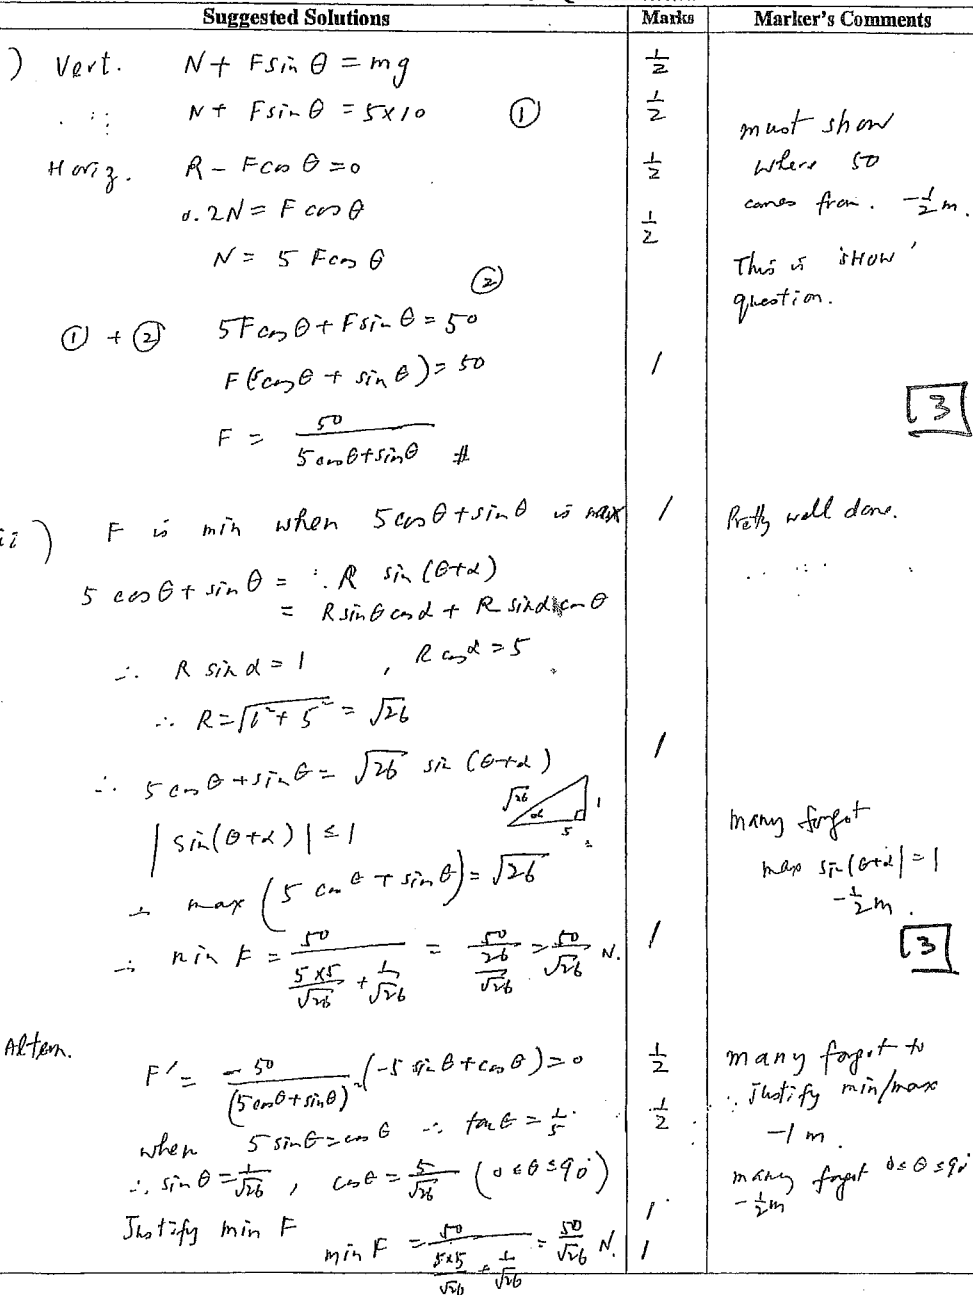 Suggested Solutions Marks Marker's Comments
) Vert. N + F sin θ = mg 1/2
N + F sin θ = 5×10 ① 1/2
must show
Horiz. R - F cos θ = 0 1/2
where 50
0.2N = F cos θ 1/2
comes from. -1/2 m.
N = 5 F cos θ ②
This is 'SHOW'
question.
① + ② 5F cos θ + F sin θ = 50
F(5cos θ + sin θ) = 50 1
3
F = 50/(5 cos θ + sin θ) #
ii) F is min when 5 cos θ + sin θ is max 1 Pretty well done.
5 cos θ + sin θ = R sin (θ+α)
= R sin θ cos α + R sin α cos θ
∴ R sin α = 1 , R cos α = 5
∴ R = √(1² + 5²) = √26
∴ 5 cos θ + sin θ = √26 sin (θ+α) 1
√26 α 1 5
|sin(θ+α)| ≤ 1
many forgot
max sin(θ+α) = 1
∴ max (5 cos θ + sin θ) = √26
-1/2 m.
∴ min F = 50/(5×5/√26 + 1/√26) = 50/(26/√26) = 50/√26 N. 1
3
Altern.
F' = -50/(5cosθ + sinθ)² (-5 sin θ + cos θ) = 0 1/2 many forgot to
justify min/max
when 5 sin θ = cos θ ∴ tan θ = 1/5 1/2
-1 m.
∴ sin θ = 1/√26 , cos θ = 5/√26 (0 ≤ θ ≤ 90°)
many forgot 0 ≤ θ ≤ 90°
-1/2 m
Justify min F 1
min F = 50/(5×5/√26 + 1/√26) = 50/√26 N. 1